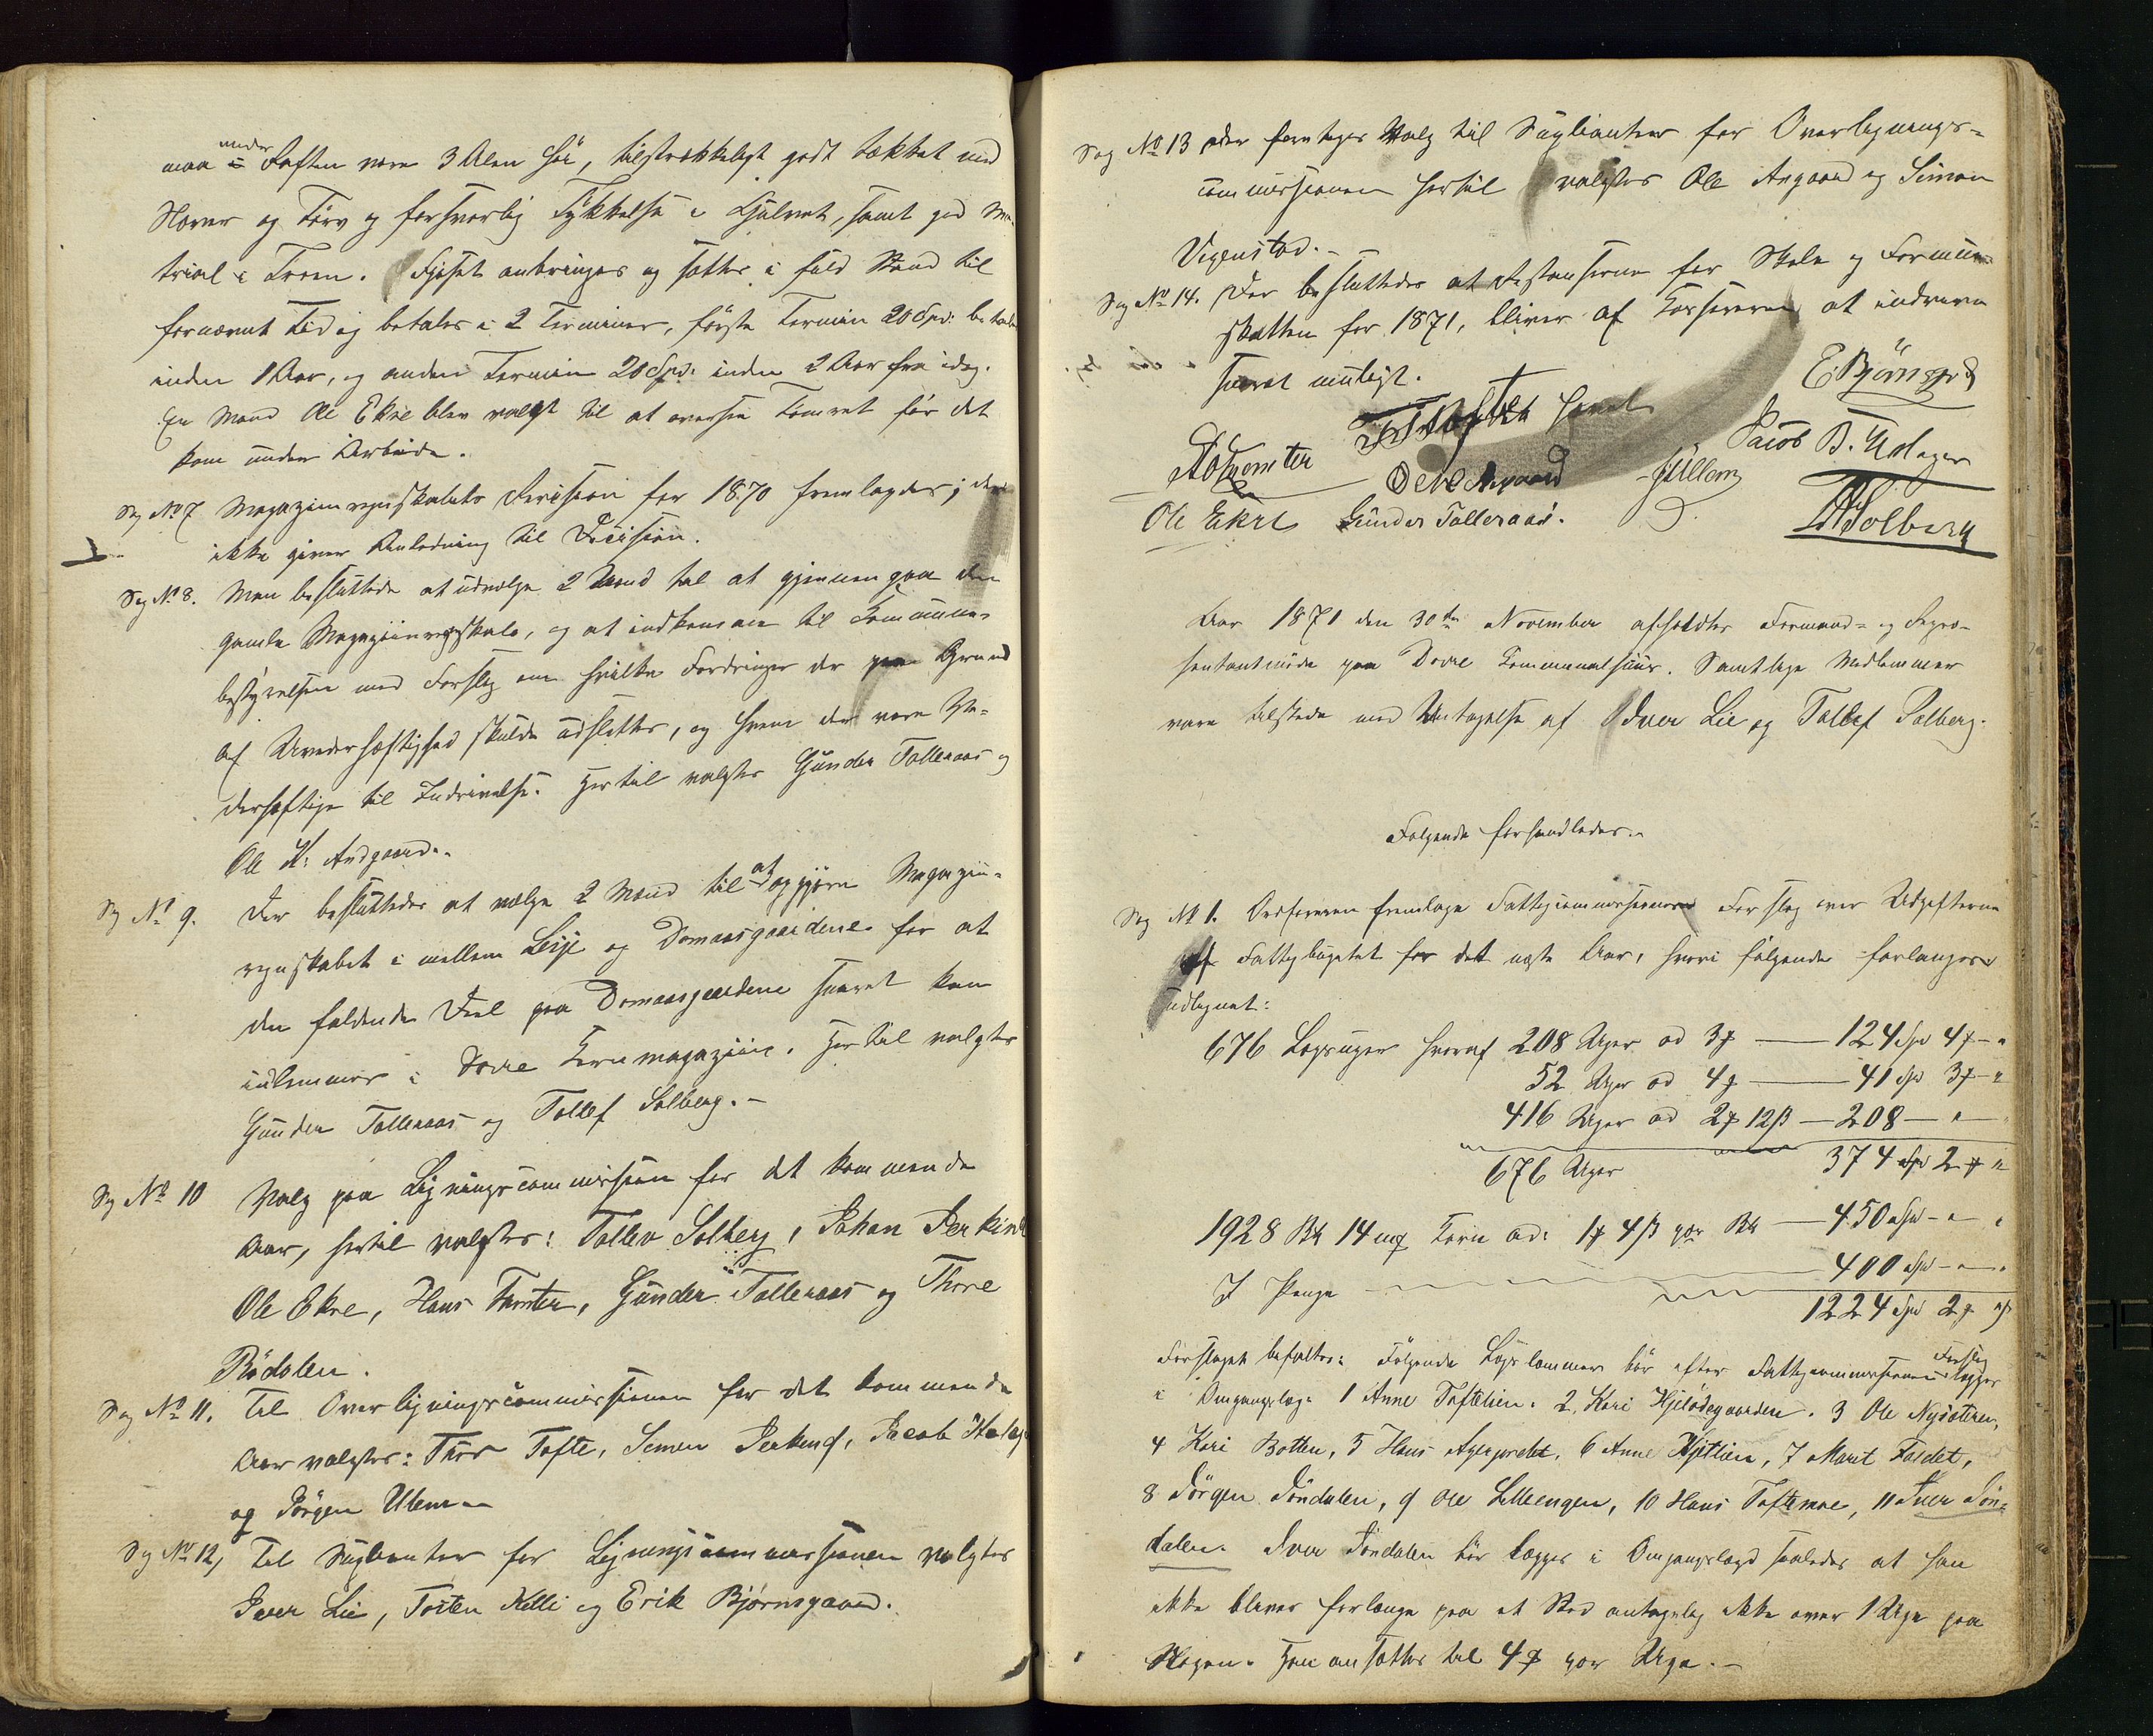 maa under Raften være 3 Alen høi, tilstrækkeligt godt tækket med
Næver og Torv og forsvarlig Tykkelse i Gulvet, samt god Ma-
trial i Troen. Fjøset anbringes og sættes i fuld Stand til
fornævnt Tid og betales i 2 Terminer, første Termin 20 Spd. betales
inden 1 Aar, og anden Termin 20 Spd. inden 2 Aar fra idag.
En Mand Ole Ekre blev valgt til at oversee Tømret før det
kom under Arbeide.
Sag No 7 Magazinregnskabets Revision for 1870 fremlagdes; den
ikke giver Anledning til Decision.
Sag No 8. Man besluttede at udvælge 2 Mænd til at gjennemgaa den
gamle Magaziinregnskab, og at indkomme til Kommune-
bestyrelsen med Forslag om hvilke Fordringer der paa Grund
af Uvederhæftighed skulde udslettes, og hvem der være Ve-
derhæftige til Inddrivelse. Hertil valgtes Gunder Tolleraas og
Ole K. Andgaard.
Sag No 9. Der besluttedes at vælge 2 Mænd til at opgjøre Magaziin-
regnskabet i mellem Lesje og Domaasgaardene for at
den faldende Deel paa Domaasgaardene snaret kan
indlemmes i Dovre Kornmagaziin. Hertil valgtes
Gunder Tolleraas og Tollef Solberg.-
Sag No 10 Valg paa Ligningscommission for det kommende
Aar, hertil valgtes: Tollev Solberg, Johan Jerkind
Ole Ekre, Hans Tomter, Gunder Tolleraas og Thore
Bødalen.
Sag No 11. Til Overligningscommissionen for det kommende
Aar valgtes: Thor Tofte, Simen Jerkend, Jacob Udager
og Jørgen Ulem.-
Sag No 12, Til Suplianter for Ligningscommissionen valgtes
Iver Lie, Tosten Killi og Erik Bjørnsgaard.
Sag No 13 der foretoges Valg til Suplianter for Overlignings-
commissionen hertil valgtes Ole Angaard og Simon
Vigenstad.-
Sag No 14. Der besluttedes at Restanserne for Skole og Formue-
skatten for 1871, bliver af Kassereren at inddrive
snarest muligt.
E Bjørnsgrd
T T Tofte
Jacob B. Udager
H Tomter
O K Angaard
J Ullem
Ole Ekre Gunder Tolleraas.
T Solberg
Aar 1871 den 30te November afholdtes Formand- og Repre-
sentantmøde paa Dovre Kommunalhuus. Samtlige Medlemmer
vare tilstede med Undtagelse af Iver Lie og Tollef Solberg.
Følgende forhandledes.-
Sag No 1. Ordføreren fremlagde Fattigcommissionens Forslag over Udgifterne
af Fattigbugetet for det næste Aar, hvori følgende forlanges
udlignet:
676 Lægsuger hvoraf 208 Uger ad 3 ¢ — 124 Spd 4 ¢ - "
52 Uger ad 4 ¢ — 41 Spd 3 ¢ - "
416 Uger ad 2 ¢ 12 ß — 208 — " — "
676 Uger 374 Spd 2 ¢ "
1928 B℔ 14 m℔ Korn ad: 1 ¢ 4 ß pr B℔ — 450 Spd - " "
I Penge 400 Spd - " - "
1224 Spd 2 ¢ " ß
Forslaget bifaltes. Følgende Lægslemmer bør efter Fattigcommissionens Forslag lægges
i Omgangslæg. 1 Anne Toftelien. 2. Kari Hjelldegaarden. 3 Ole Nysæteren,
4 Kari Botten, 5 Hans Agerjordet, 6 Anne Hjitlien, 7 Marit Faldet,
8 Jørgen Jøndalen, 9 Ole Lilleengen, 10 Hans Toftemoe, 11 Iver Jøn-
dalen. Iver Jøndalen bør lægges i Omgangslægd saaledes at han
ikke bliver forlænge paa et Sted antagelig ikke over 1 Uge paa
Skogen. Han ansættes til 4 ¢ per Uge.-